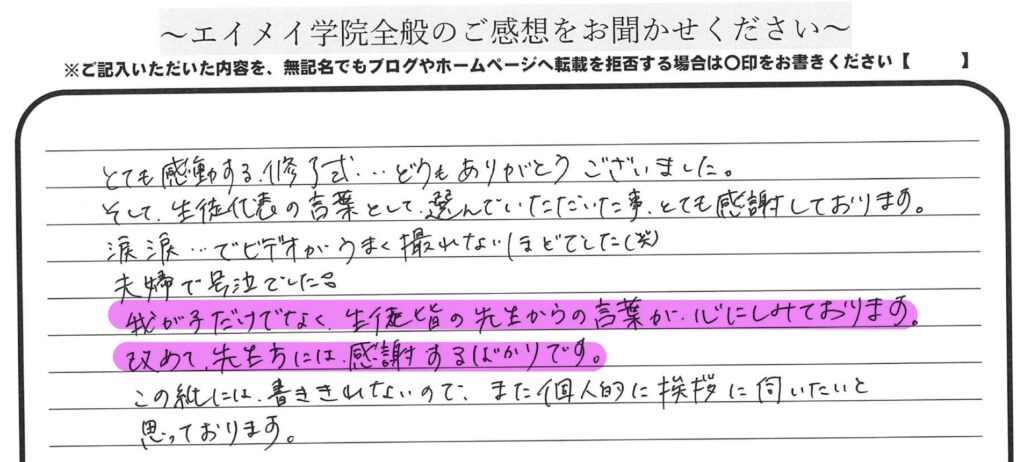 ～エイメイ学院全般のご感想をお聞かせください～
※ご記入いただいた内容を、無記名でもブログやホームページへ転載を拒否する場合は〇印をお書きください【　　　】
とても感動する、修了式…どうもありがとうございました。
そして、生徒代表の言葉として、選んでいただいた事、とても感謝しております。
涙涙…でビデオがうまく撮れないほどでした(笑)
夫婦で号泣でした。
我が子だけでなく、生徒と皆の先生からの言葉が、心にしみております。
改めて、先生方には、感謝するばかりです。
この紙には、書ききれないので、また個人的に挨拶に伺いたいと
思っております。